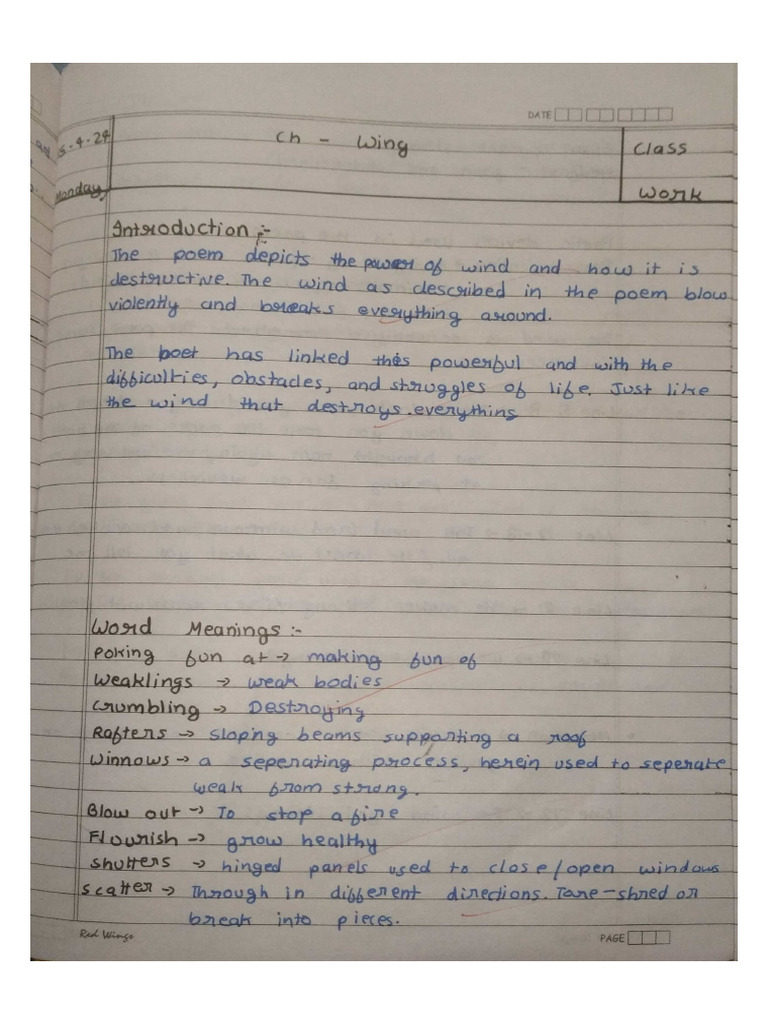 DATE
5-4-24
Ch - Wing
Class
Monday
Work
Introduction :-
The poem depicts the power of wind and how it is
destructive. The wind as described in the poem blow
violently and breaks everything around.
The poet has linked this powerful and with the
difficulties, obstacles, and struggles of life. Just like
the wind that destroys everything
Word Meanings :-
Poking fun at → making fun of
Weaklings → weak bodies
Crumbling → Destroying
Rafters → sloping beams supporting a roof
Winnows → a seperating process, herein used to seperate
weak from strong.
Blow out → To stop a fire
Flourish → grow healthy
Shutters → hinged panels used to close/open windows
Scatter → Through in different directions. Tare-shred or
break into pieces.
Red Wings
PAGE